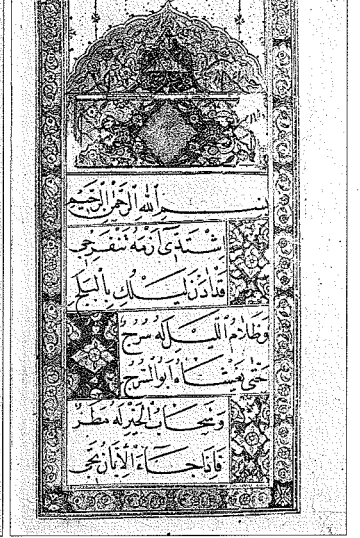 بسم الله الرحمن الرحيم
اِشْتَدِّى اَزْمَةُ تَنْفَرِجِى
قَدْ اٰذَنَ لَيْلُكِ بِالْبَلَجِ
وَظَلَامُ اللَّيْلِ لَهُ سُرُجٌ
حَتّٰى يَغْشَاهُ اَبُو السُّرُجِ
وَسَحَابُ الْخَيْرِ لَهُ مَطَرٌ
فَاِذَا جَاءَ الْاِبَّانُ تَجِى